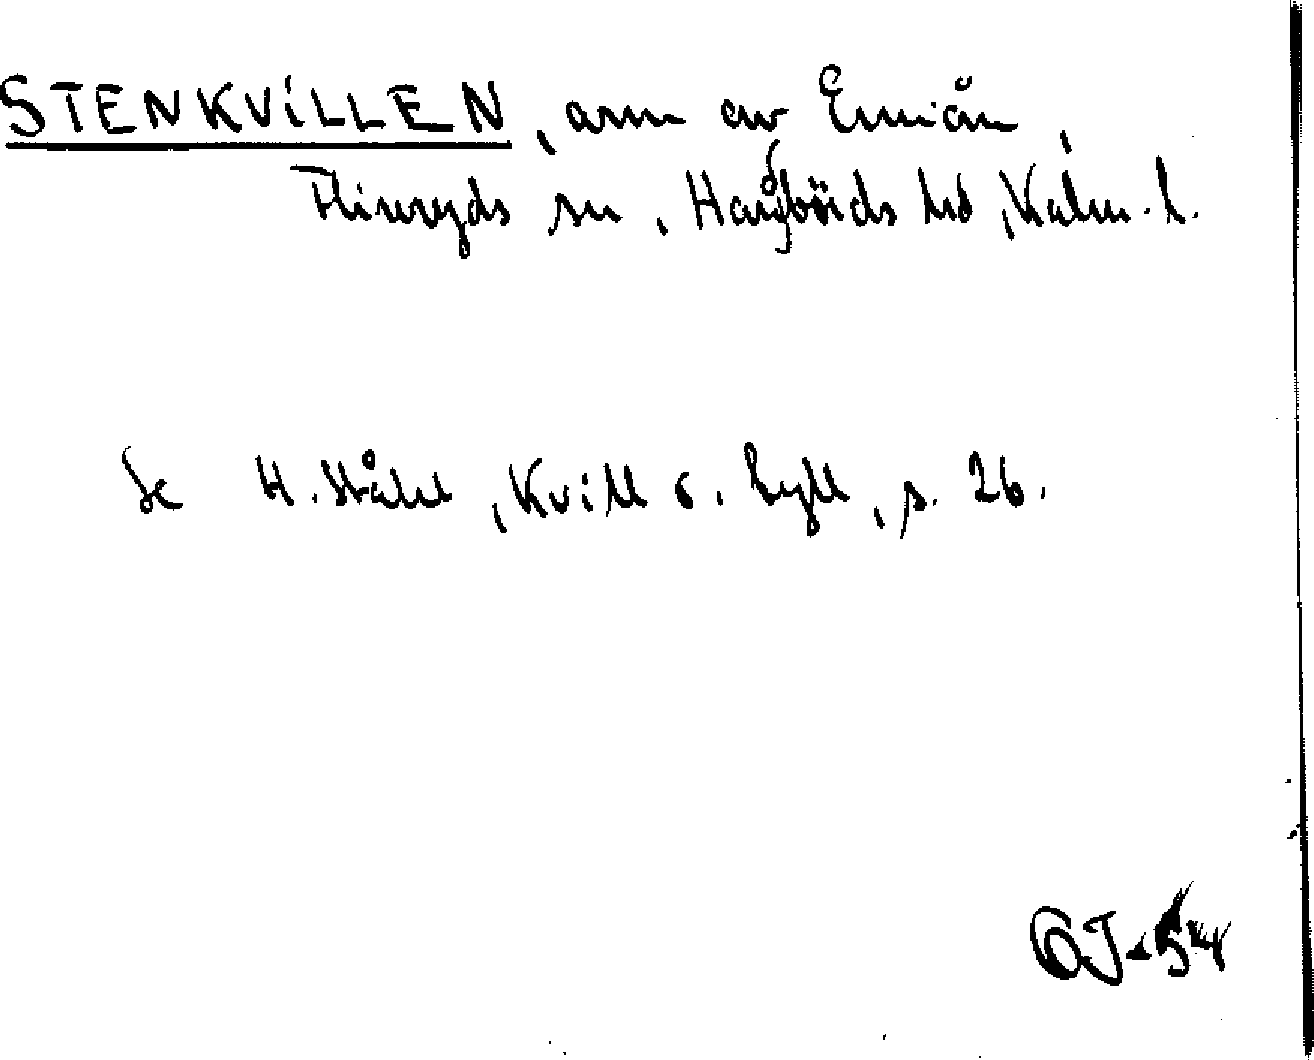 STENKVILLEN, arm av Emån,
Fliseryds sn, Handbörds hd, Kalm. l.
Se H. Ståhl, Kvill o. Tyll, s. 26.